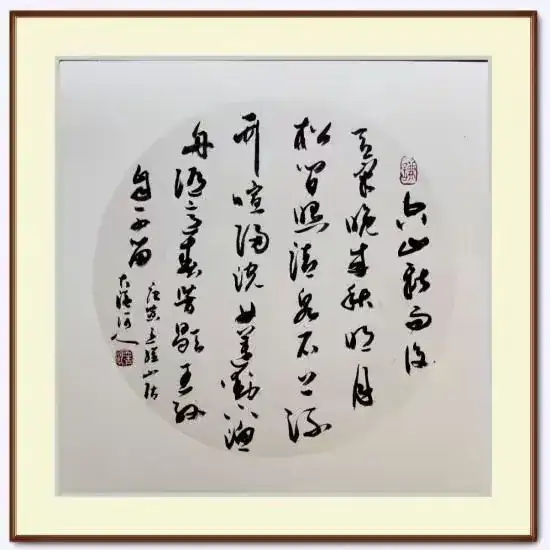 空山新雨后
天氣晚来秋明月
松间照清泉石上流
竹喧归浣女莲动下渔
舟随意春芳歇王孙
自可留